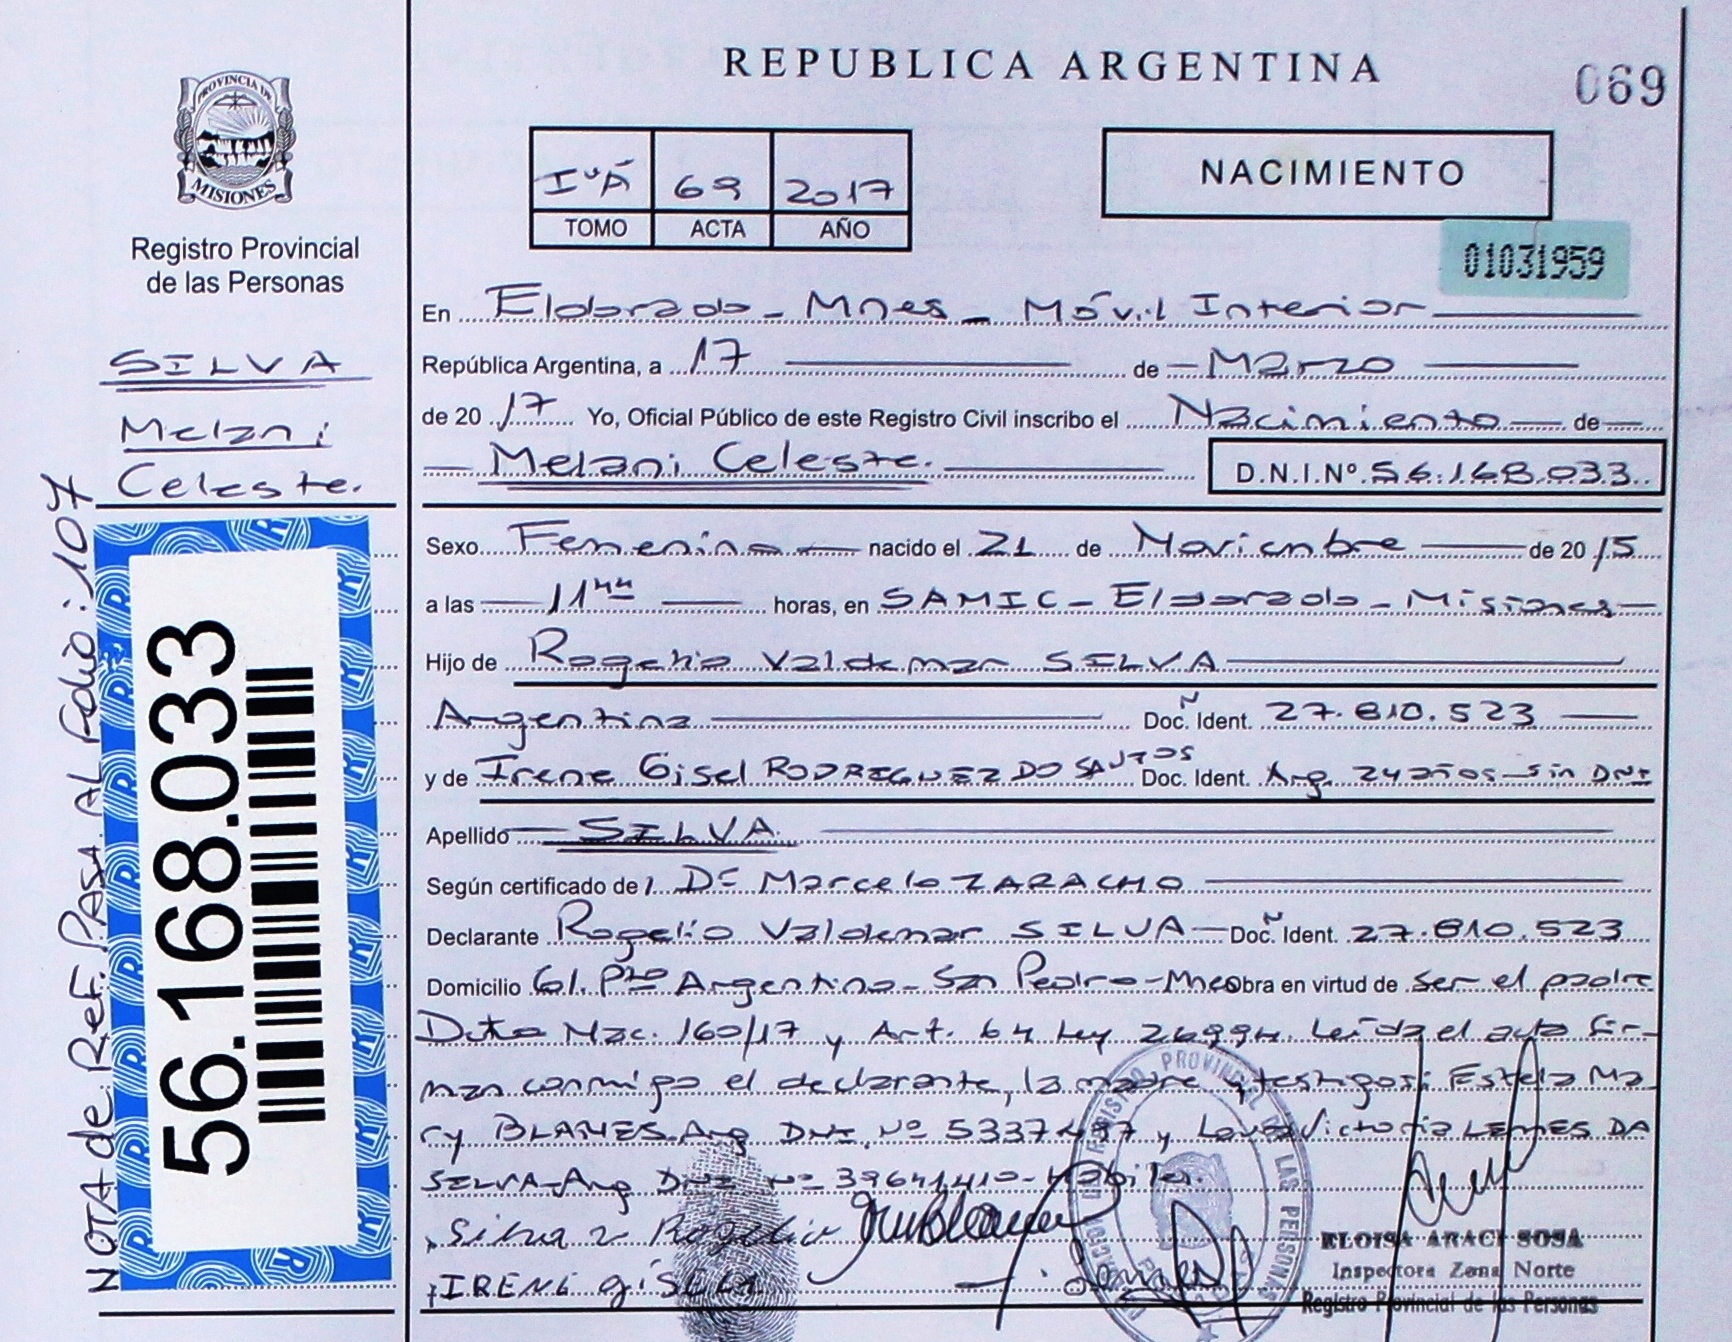 REPUBLICA ARGENTINA
069
PROVINCIA DE
MISIONES
Registro Provincial
de las Personas
IºA 69 2017
TOMO ACTA AÑO
NACIMIENTO
01031959
SILVA
Melani
Celeste.
NOTA de Ref. Pasa AL Folio: 107
56.168.033
En Eldorado - Mnes - Móvil Interior
República Argentina, a 17 de Marzo
de 2017 Yo, Oficial Público de este Registro Civil inscribo el Nacimiento de
Melani Celeste. D.N.I.Nº 56.168.033
Sexo Femenino nacido el 21 de Noviembre de 2015
a las 11 horas, en SAMIC - Eldorado - Misiones
Hijo de Rogelio Valdemar SILVA
Argentina Doc. Ident. 27.810.523
y de Irene Gisel RODRIGUEZ DO SANTOS Doc. Ident. Arg. 24 años - sin DNI
Apellido SILVA
Según certificado de Dr Marcelo ZARACHO
Declarante Rogelio Valdemar SILVA - Doc. Ident. 27.810.523
Domicilio Gl. Pto Argentino - San Pedro - Mnes obra en virtud de ser el padre
Dcto Nac. 160/17 y Art. 64 Ley 26994. Leída el acta fir-
man conmigo el declarante, la madre y testigos: Estela Ma
ry BLANES Arg DNI Nº 5337 y Victoria LEMES DA
SILVA - Arg DNI Nº 39641410 -
Silva Rogelio
IRENE giSELA
REGISTRO PROVINCIAL DE LAS PERSONAS
ELOISA ARACI SOSA
Inspectora Zona Norte
Registro Provincial de las Personas